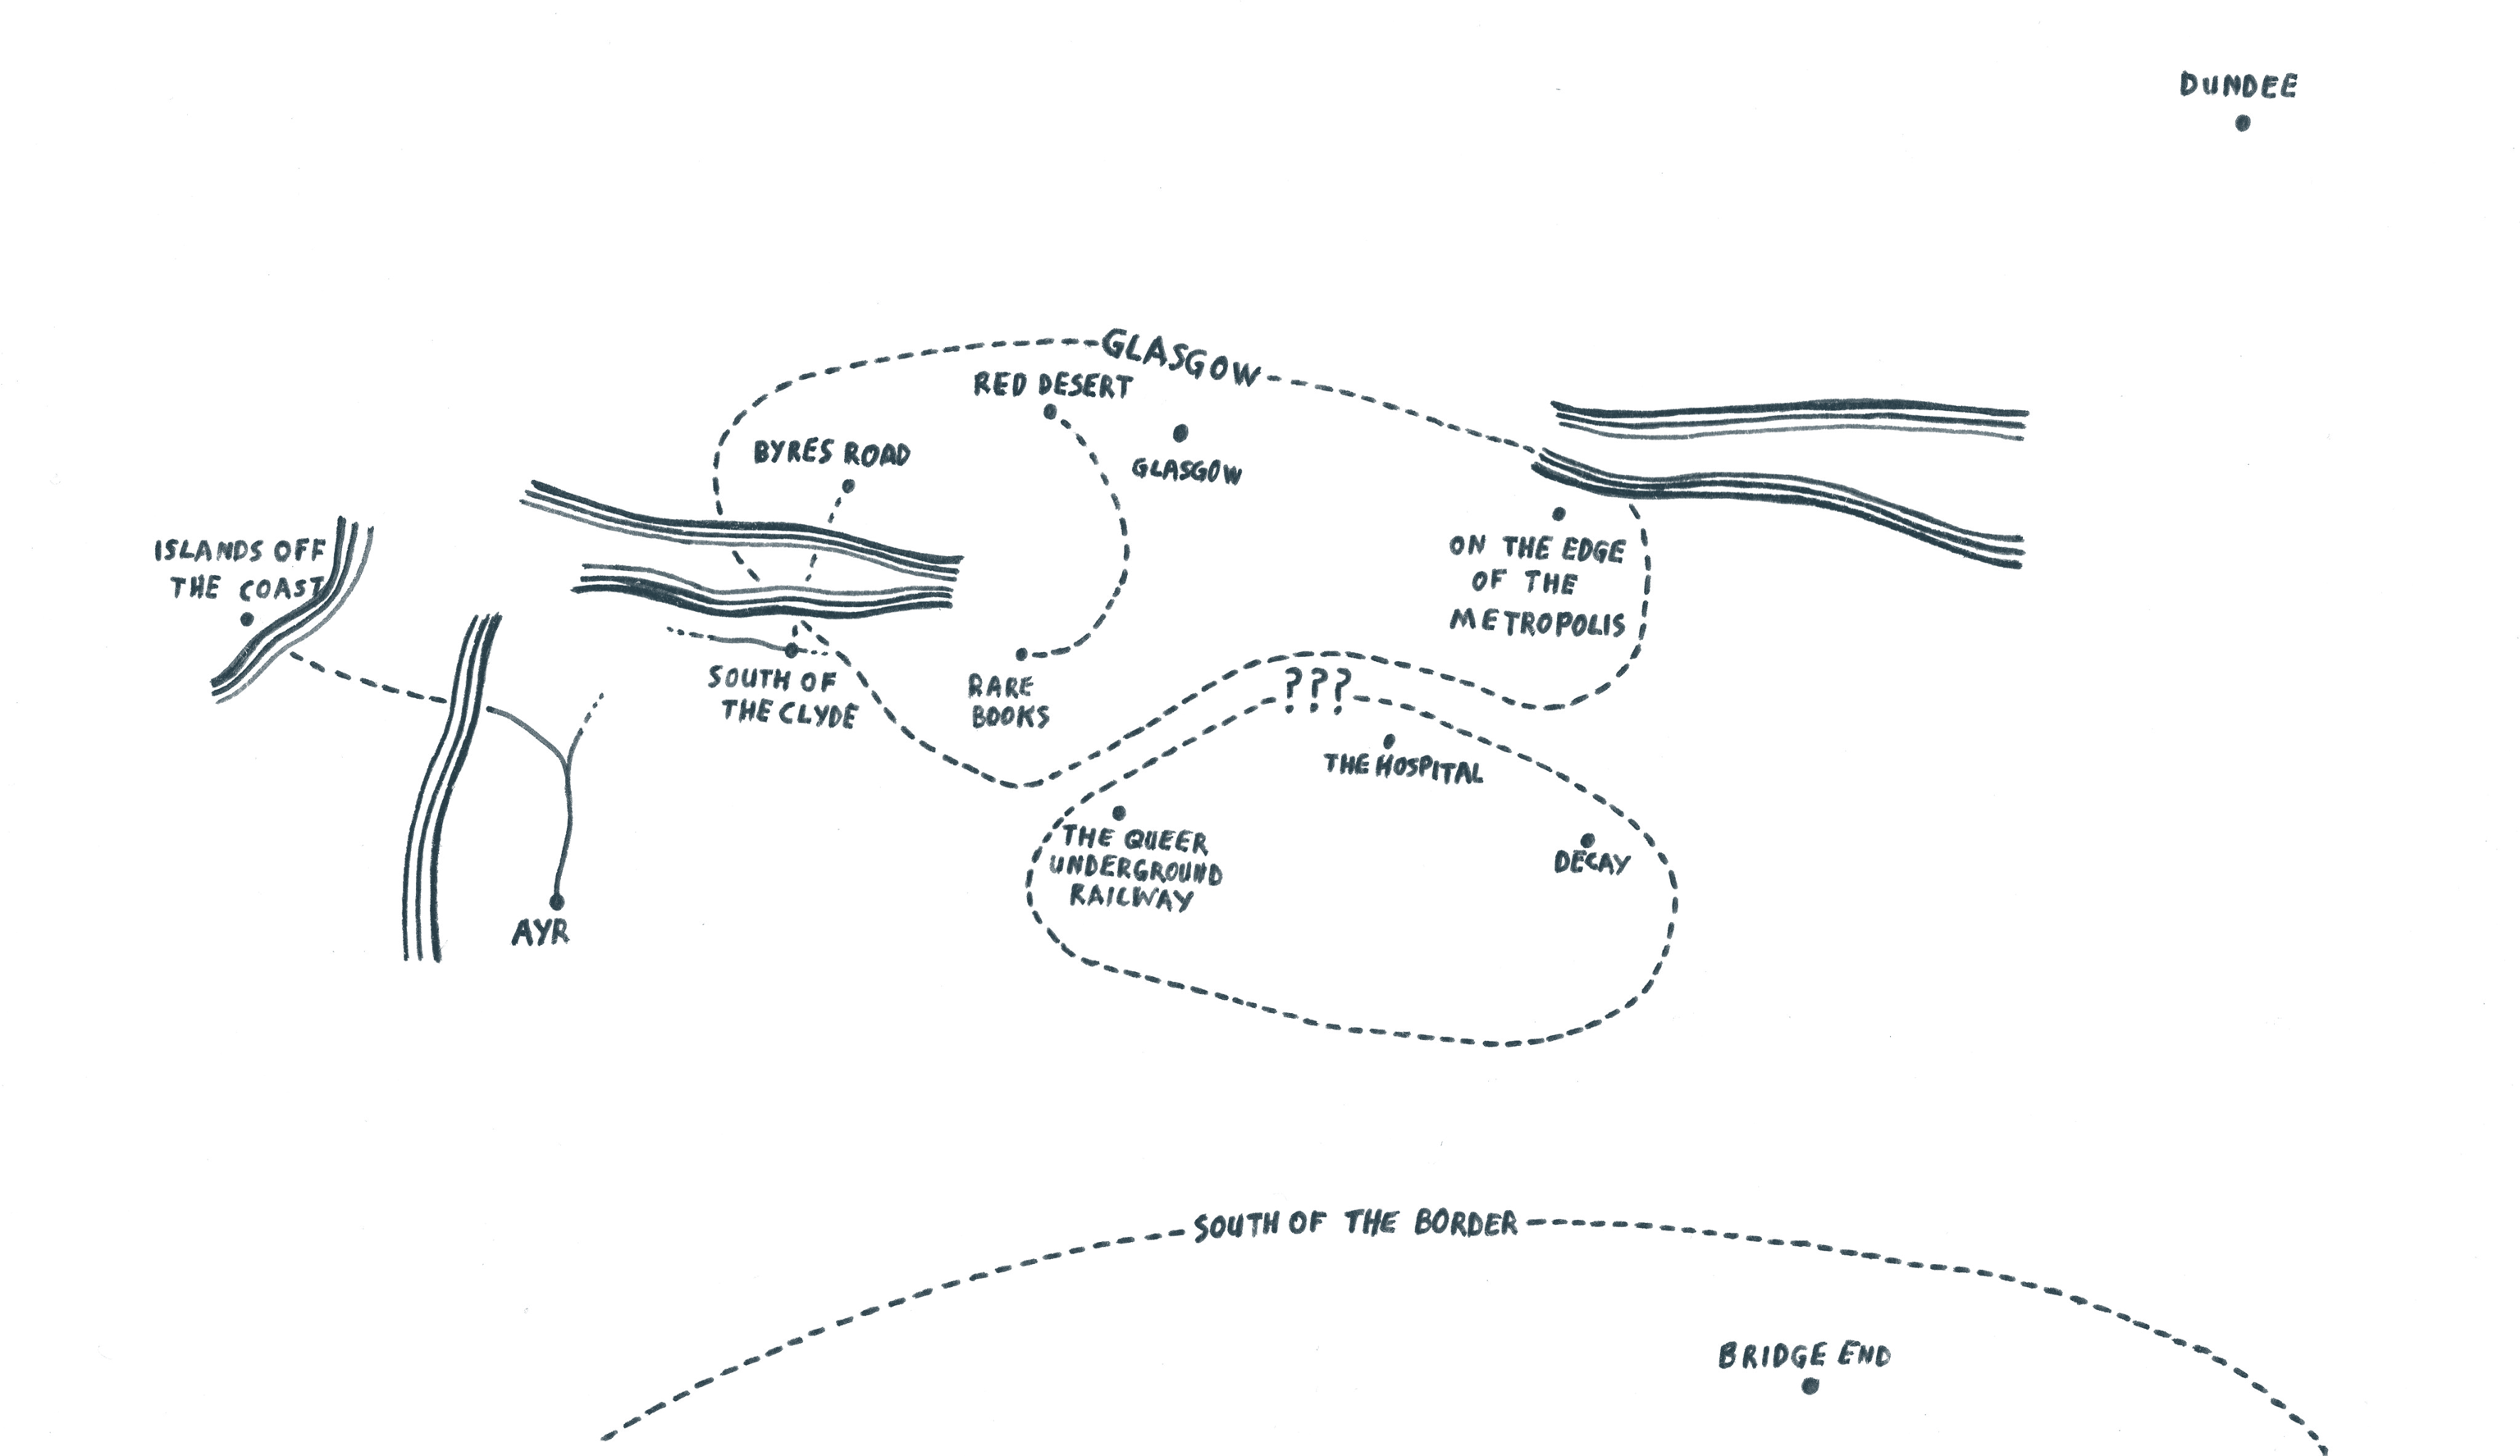 DUNDEE
GLASGOW
RED DESERT
GLASGOW
BYRES ROAD
ISLANDS OFF
THE COAST
ON THE EDGE
OF THE
METROPOLIS
SOUTH OF
THE CLYDE
RARE
BOOKS
???
THE HOSPITAL
THE QUEER
UNDERGROUND
RAILWAY
DECAY
AYR
SOUTH OF THE BORDER
BRIDGE END